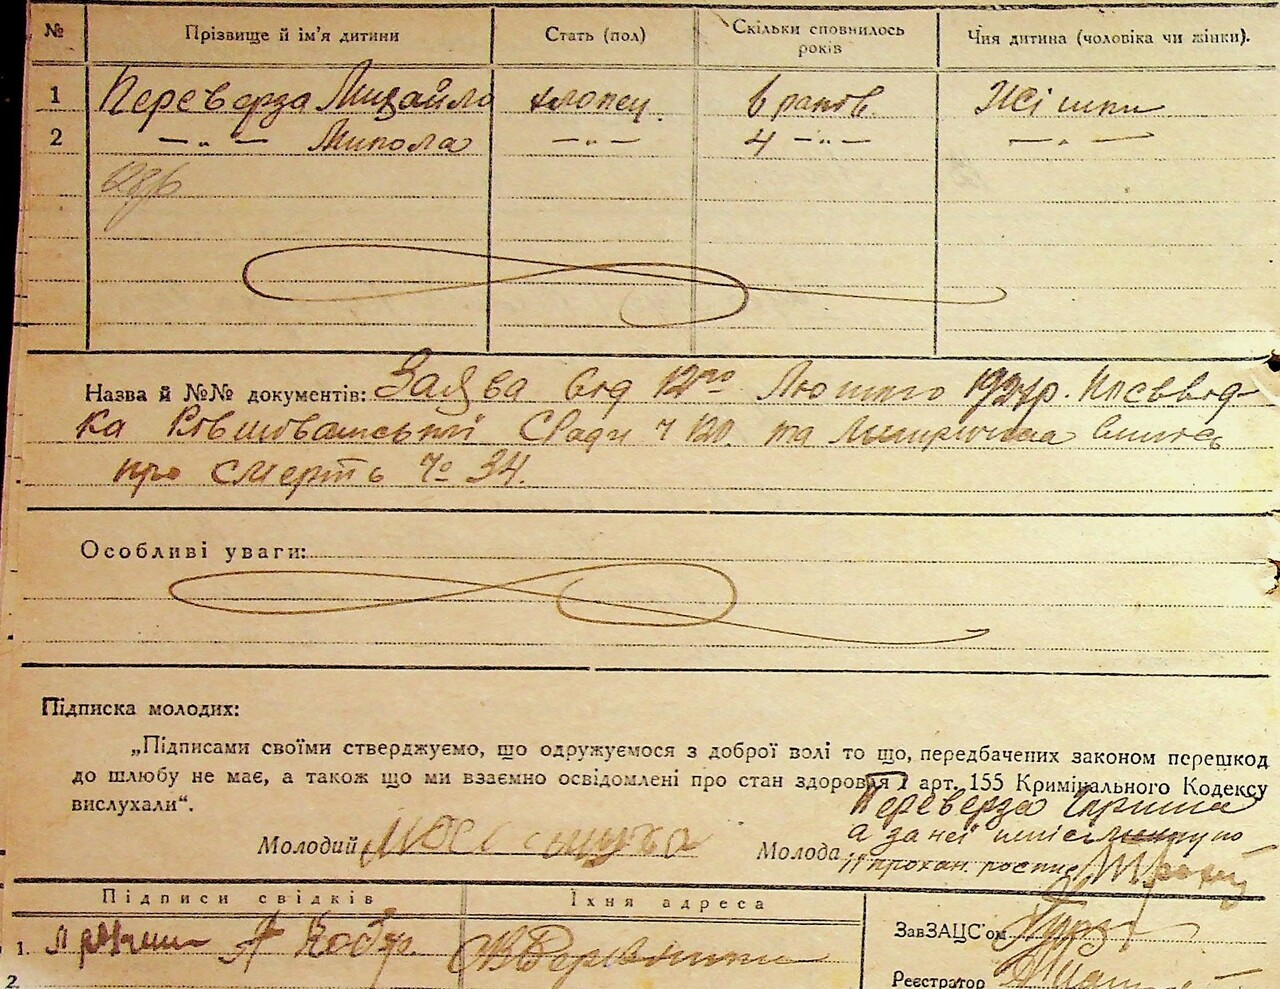 № Прізвище й ім'я дитини Стать (пол) Скільки сповнилось років Чия дитина (чоловіка чи жінки).
1 Переверза Михайло хлопец. 6 років. Жінки
2 — „ — Микола — „ — 4 — „ — — „ —
Назва й №№ документів: Заява від 12го Лютого 1927р. Посввод-
ка Сради ч 120. та
про смерть Чо 34.
Особливі уваги:
Підписка молодих:
„Підписами своїми стверджуємо, що одружуємося з доброї волі то що, передбачених законом перешкод
до шлюбу не має, а також що ми взаємно освідомлені про стан здоровля і арт. 155 Кримінального Кодексу
вислухали“.
Переверза
а за неї
Молодий Молода її прохан. роспис.
Підписи свідків Їхня адреса
ЗавЗАЦС'ом
1.
2. Реєстратор